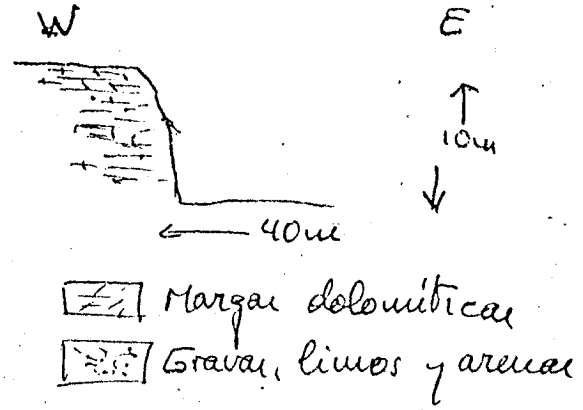 W E
10m
40m
Margas dolomíticas
Gravas, limos y arenas